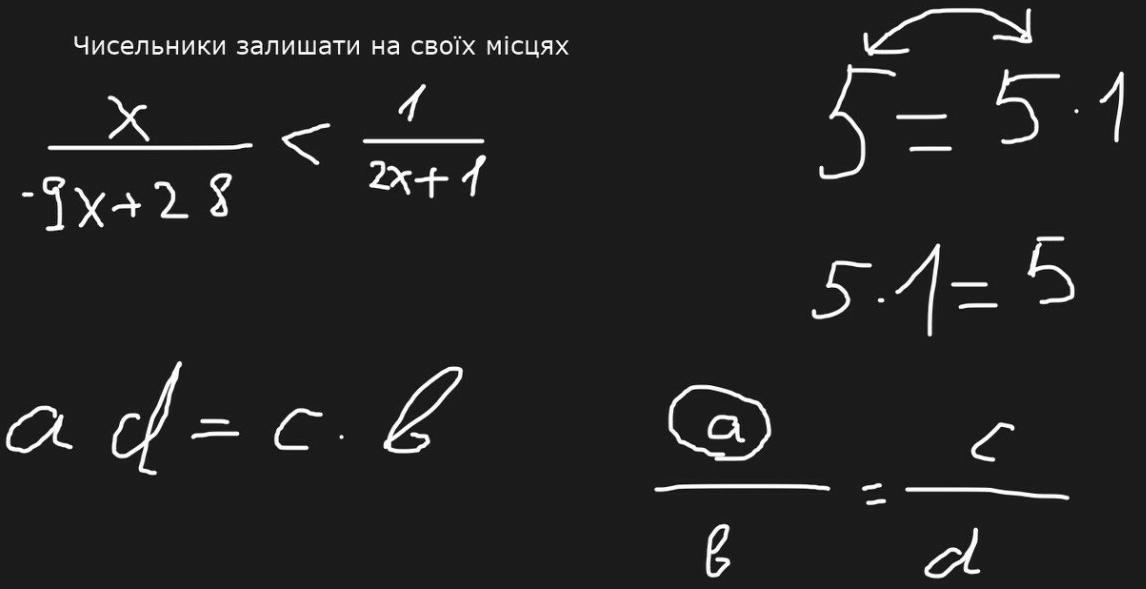 Чисельники залишати на своїх місцях
x / -9x+28 < 1 / 2x+1
5 = 5 · 1
5 · 1 = 5
a d = c · b
a / b = c / d